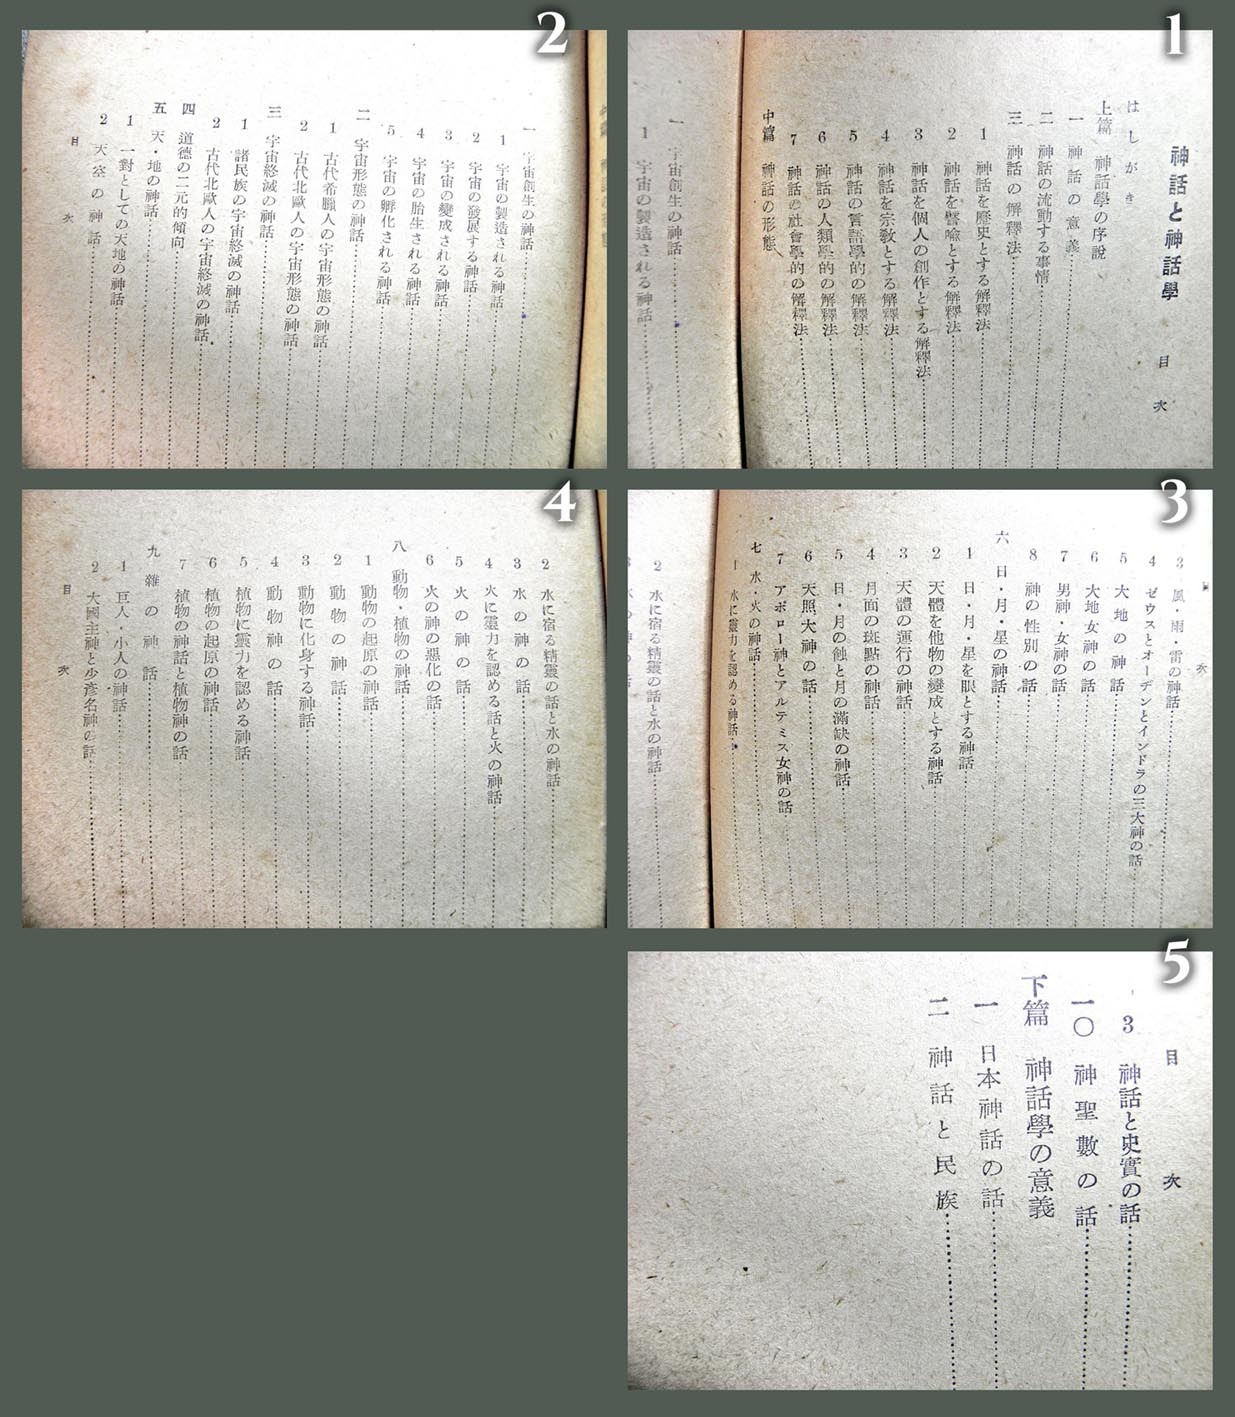 1
神話と神話學 目次
はしがき
上篇 神話學の序說
一 神話の意義
二 神話の流動する事情
三 神話の解釋法
1 神話を歷史とする解釋法
2 神話を譬喩とする解釋法
3 神話を個人の創作とする解釋法
4 神話を宗敎とする解釋法
5 神話の言語學的の解釋法
6 神話の人類學的の解釋法
7 神話の社會學的の解釋法
中篇 神話の形態
一 宇宙創生の神話
1 宇宙の製造される神話
2
一 宇宙創生の神話
1 宇宙の製造される神話
2 宇宙の發展する神話
3 宇宙の變成される神話
4 宇宙の胎生される神話
5 宇宙の孵化される神話
二 宇宙形態の神話
1 古代希臘人の宇宙形態の神話
2 古代北歐人の宇宙形態の神話
三 宇宙終滅の神話
1 諸民族の宇宙終滅の神話
2 古代北歐人の宇宙終滅の神話
四 道德の二元的傾向
五 天・地の神話
1 一對としての天地の神話
2 天空の神話
目次
3
目次
3 風・雨・雷の神話
4 ゼウスとオーヂンとインドラの三大神の話
5 大地の神話
6 大地女神の話
7 男神・女神の話
8 神の性別の話
六 日・月・星の神話
1 日・月・星を眼とする神話
2 天體を他物の變成とする神話
3 天體の運行の神話
4 月面の斑點の神話
5 日・月の蝕と月の滿缺の神話
6 天照大神の話
7 アポロー神とアルテミス女神の話
七 水・火の神話
1 水に靈力を認める神話
2 水に宿る精靈の話と水の神話
4
2 水に宿る精靈の話と水の神話
3 水の神の話
4 火に靈力を認める話と火の神話
5 火の神の話
6 火の神の惡化の話
八 動物・植物の神話
1 動物の起原の神話
2 動物の神話
3 動物に化身する神話
4 動物神の話
5 植物に靈力を認める神話
6 植物の起原の神話
7 植物の神話と植物神の話
九 雜の神話
1 巨人・小人の神話
2 大國主神と少彥名神の話
目次
5
目次
3 神話と史實の話
一〇 神聖數の話
下篇 神話學の意義
一 日本神話の話
二 神話と民族